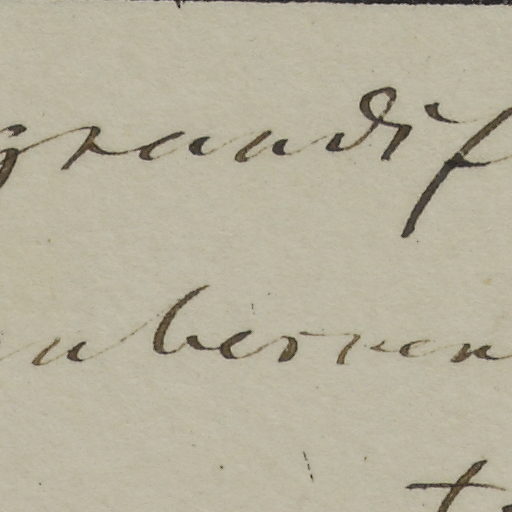 grandif
nberren
t